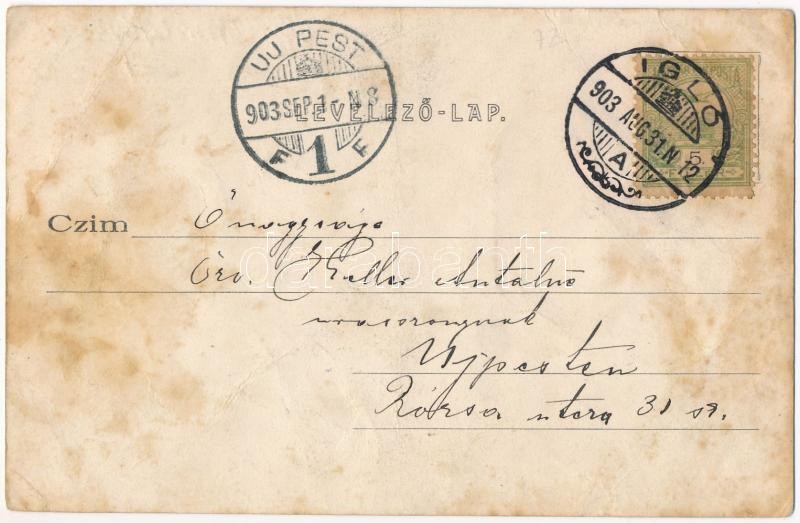 UJ PEST
903 SEP. 1 - N 8
F 1 F
IGLÓ
903 AUG. 31. N 12
A
5
LEVELEZŐ-LAP.
Czim Őnagysága
Özv. Keller Antalné
urasszonynak
Ujpesten
Rózsa utcza 31 sz.
darabanth